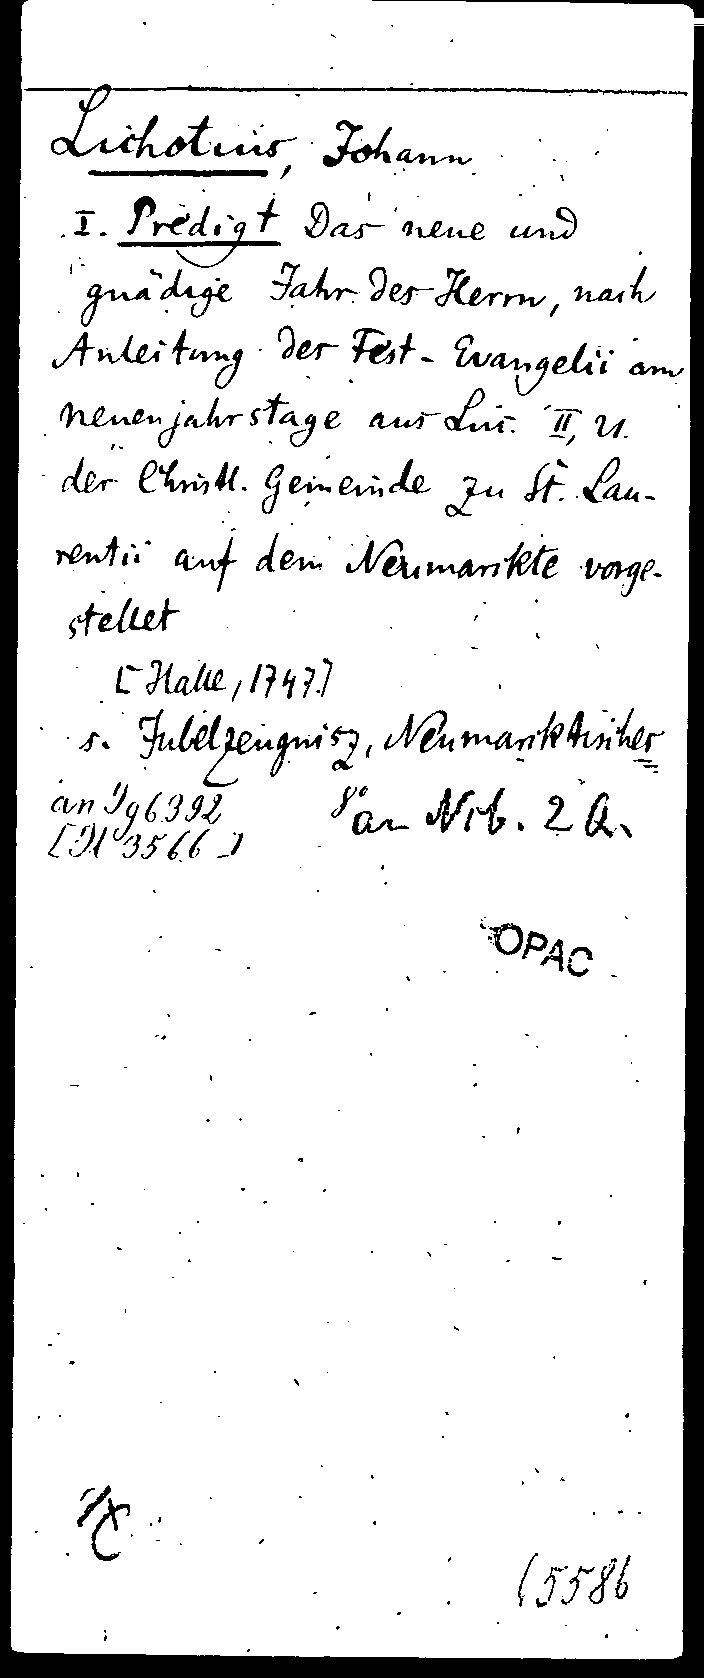 Lichotius, Johann
I. Predigt Das neue und
gnädige Jahr des Herrn, nach
Anleitung des Fest-Evangelii am
neuenjahrstage aus Luc. II, 21.
der Christl. Gemeinde zu St. Lau-
rentii auf dem Neumarckte vorge-
stellet
[Halle, 1747.]
s. Jubelzeugnisz, Neumarcktisches
an Yg6392 8°
[Il 3566]
an Nrb. 2 Q.
OPAC
15586